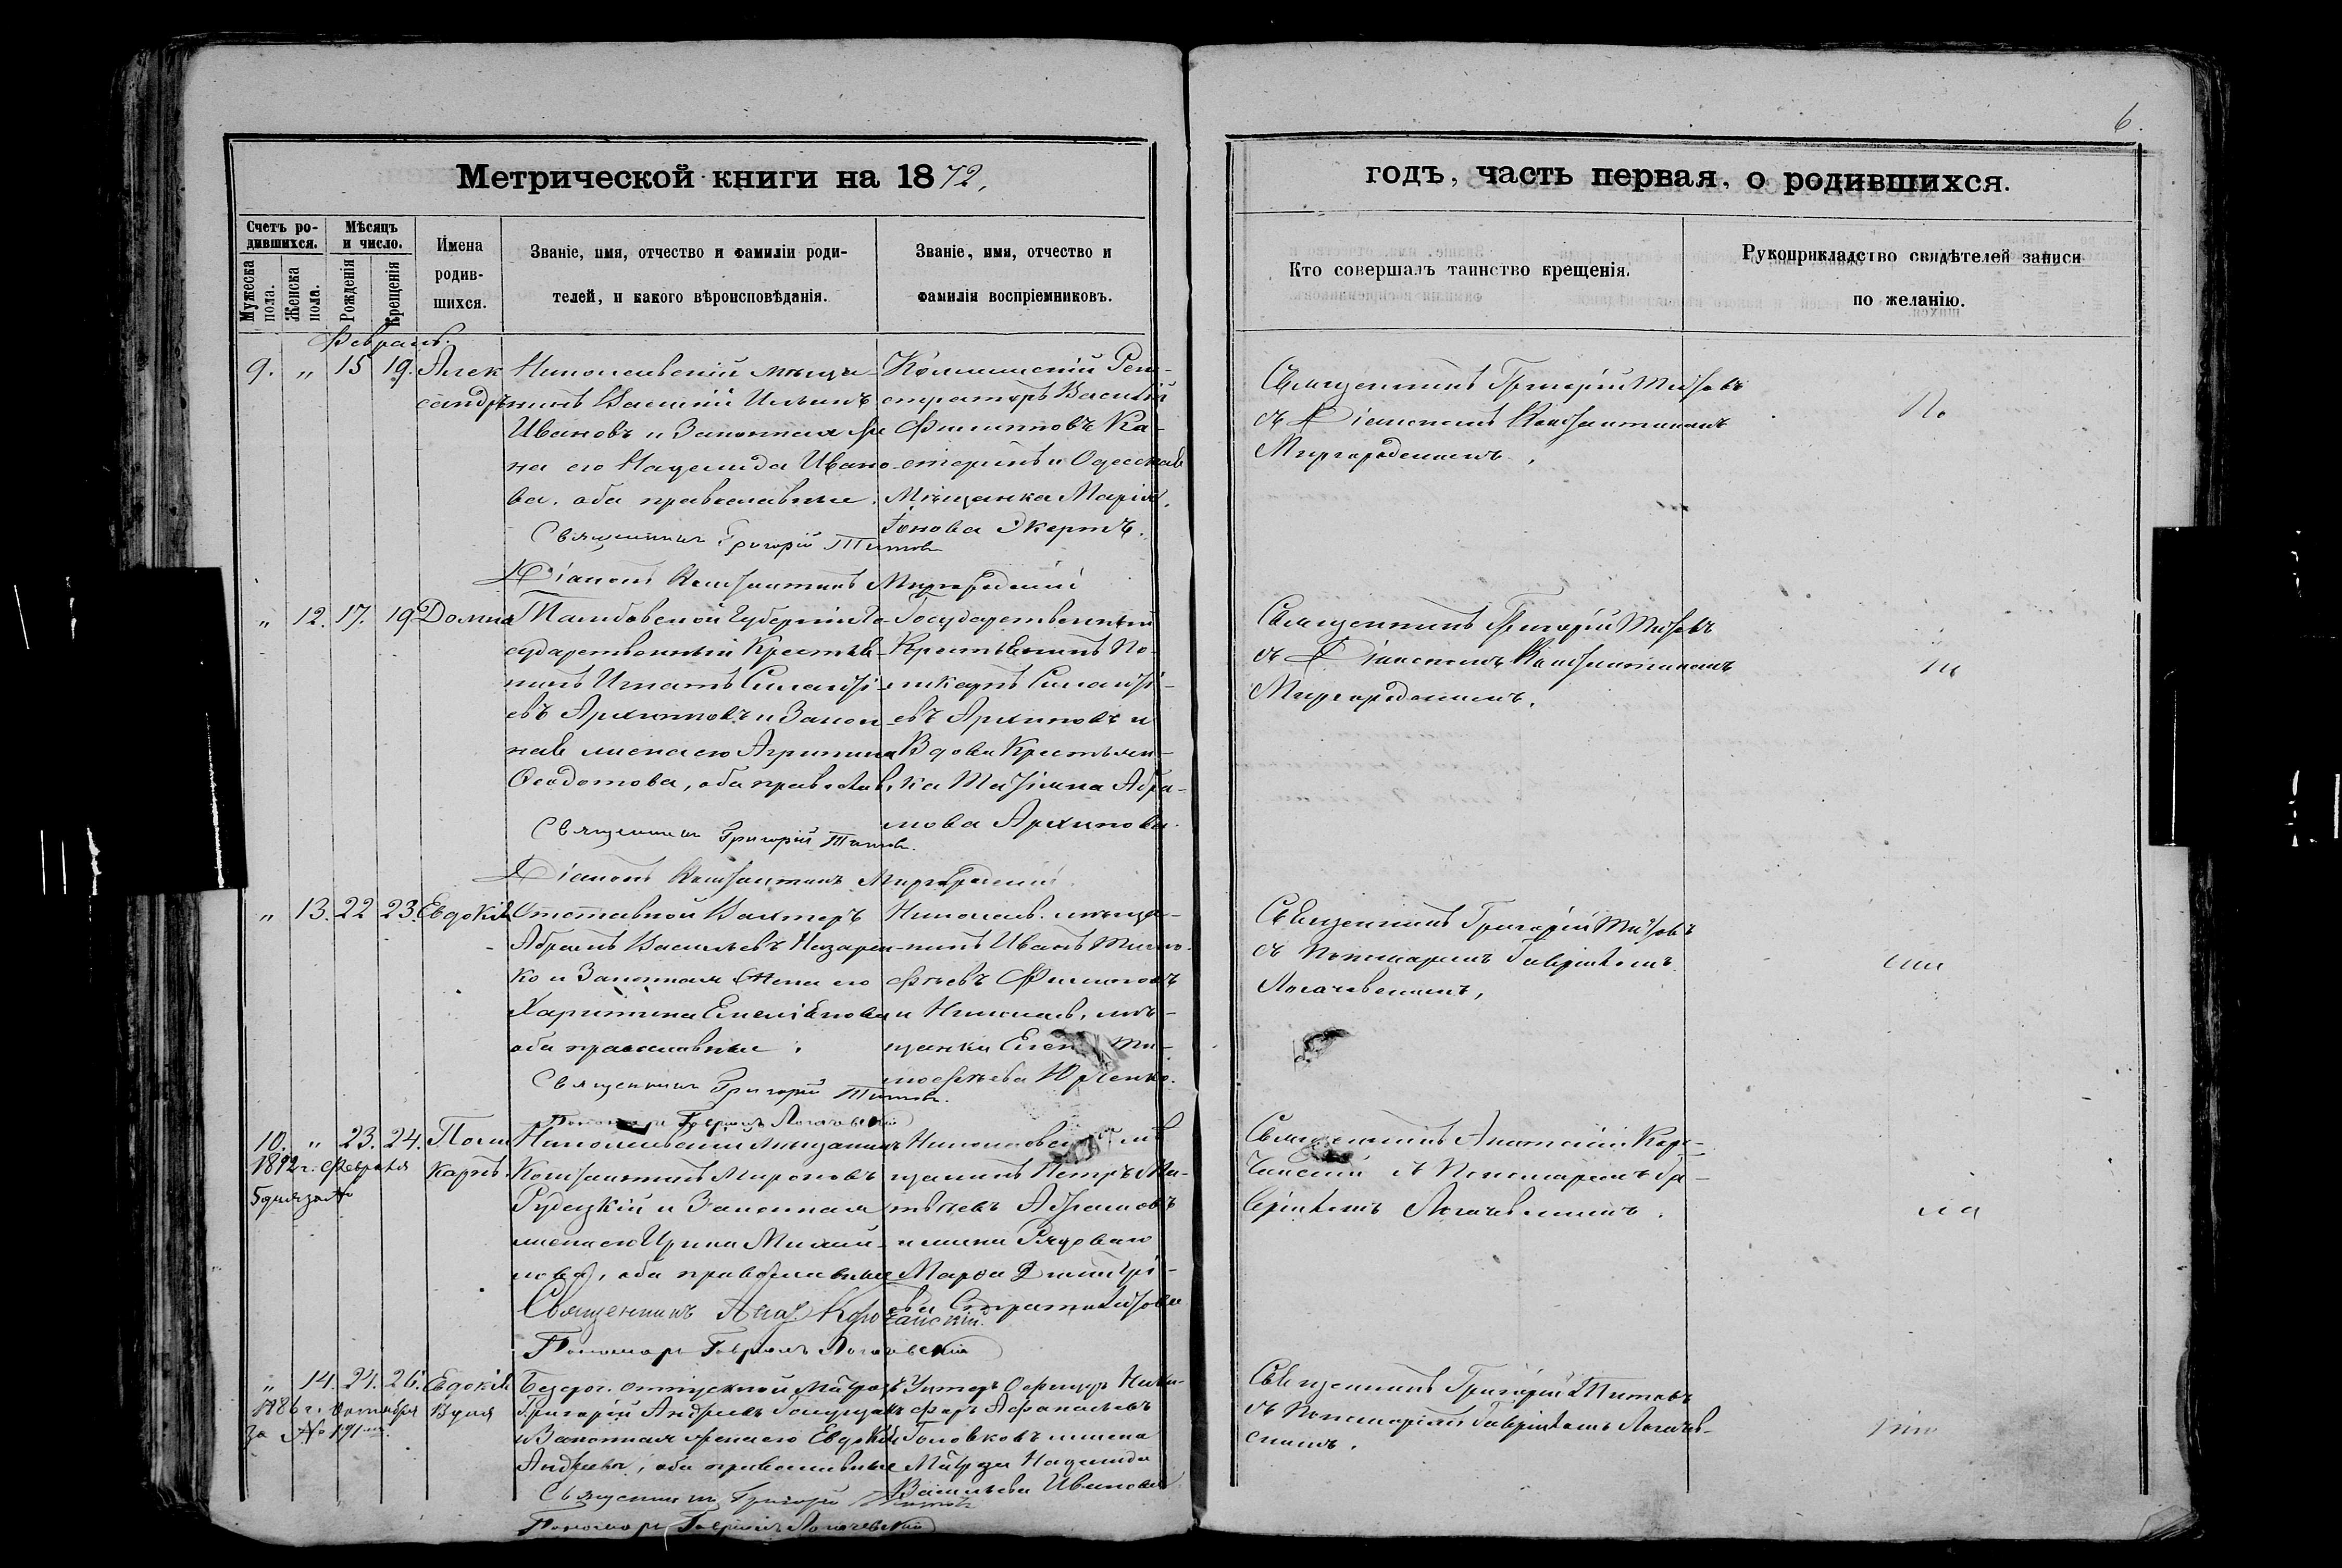 6.
Метрической книги на 1872,
годъ, часть первая, о родившихся.
Счетъ ро-
дившихся.
Мѣсяцъ
и число.
Мужеска
пола.
Женска
пола.
Рожденія
Крещенія
Имена
родив-
шихся.
Званіе, имя, отчество и фамиліи роди-
телей, и какого вѣроисповѣданія.
Званіе, имя, отчество и
фамилія воспріемниковъ.
Кто совершалъ таинство крещенія.
Рукоприкладство свидѣтелей записи
по желанію.
Февраль.
9. " 15 19.
Алек
сандръ
Николаевскій мѣща-
нинъ Василій Ильинъ
Ивановъ и Законная же
на его Надежда Ивано-
ва. оба православные.
Священникъ Григорій Титовъ
Діаконъ Константинъ Миргородскій
Коллежскій Реги-
страторъ Василій
Филипповъ Ка-
и Одесская
Мѣщанка Марія
Іонова Экертъ.
Священникъ Григорій Титовъ
съ Діакономъ Константиномъ
Миргородскимъ.
По
" 12. 17. 19
Домна
Тамбовской Губерніи Го-
сударственный Крестья-
нинъ Игнатъ Силантьі-
евъ Архиповъ и Закон-
ная жена его Агрипина
Ѳеодотова, оба православ.
Священникъ Григорій Титовъ.
Діаконъ Константинъ Миргородскій.
Государственный
Крестьянинъ По-
ликарпъ Силантьі-
евъ Архиповъ и
Вдова Крестьян-
ка Татіяна Абра-
мова Архипова.
Священникъ Григорій Титовъ
съ Діакономъ Константиномъ
Миргородскимъ.
13. 22 23.
Евдокія
Отставной Вахтеръ
Абрамъ Васильевъ Назарен-
ко и Законная Жена его
Харитина Емеліянова
оба православные.
Священникъ Григорій Титовъ.
Пономарь Гавріилъ Логачевскій
Николаев. мѣща-
нинъ Иванъ Тимо-
фѣевъ Филиповъ
и Николаев. мѣ-
щанка Ти-
мофѣева Юрченко.
Священникъ Григорій Титовъ
съ Пономаремъ Гавріиломъ
Логачевскимъ,
10. " 23. 24.
1892 г. Февраля
5 дня за №
Поли
карпъ.
Николаевскій мѣщанинъ
Константинъ Мироновъ
Рудецкій и Законная
жена его Ирина Михай-
лова, оба православные
Священникъ Анат. Корчанскій.
Пономарь Гавріилъ Логачевскій
мѣ
щанинъ Петръ Ма-
твѣевъ Абрамовъ
и жена Рядоваго
Марѳа Димитрі-
ева
Священникъ Анатолій Кор-
чанскій съ Пономаремъ Га-
вріиломъ Логачевскимъ.
" 14. 24. 26.
г. Октября
за № 191
Евдокія
Безсроч. отпускной Матросъ
Григорій Андреевъ
и Законная жена его Евдокія
Андреева, оба православные
Священникъ Григорій Титовъ
Пономарь Гавріилъ Логачевскій
Унтеръ Офицеръ Ники-
форъ Афанасьевъ
Головковъ и жена
Матроза Надежда
Васильева Иванова
Священникъ Григорій Титовъ
съ Пономаремъ Гавріиломъ Логачев-
скимъ.